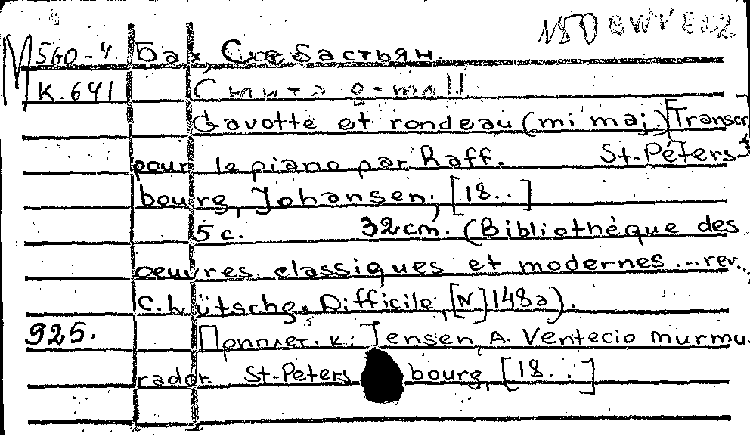 M 560-4 Бах Себастьян.
К.641
Gavotte et rondeau (mi maj) Transcr
pour le piano par Raff. St.-Péters
bourg, Johansen, [18..]
5 c. 32cm. (Bibliothéque des
oeuvres classiques et modernes ... rev.,
C. Lütsche. Difficile, [N] 148a).
925. Приплет. к: Jensen, A. Ventecio murmu
rador St-Peters bourg, [18..]